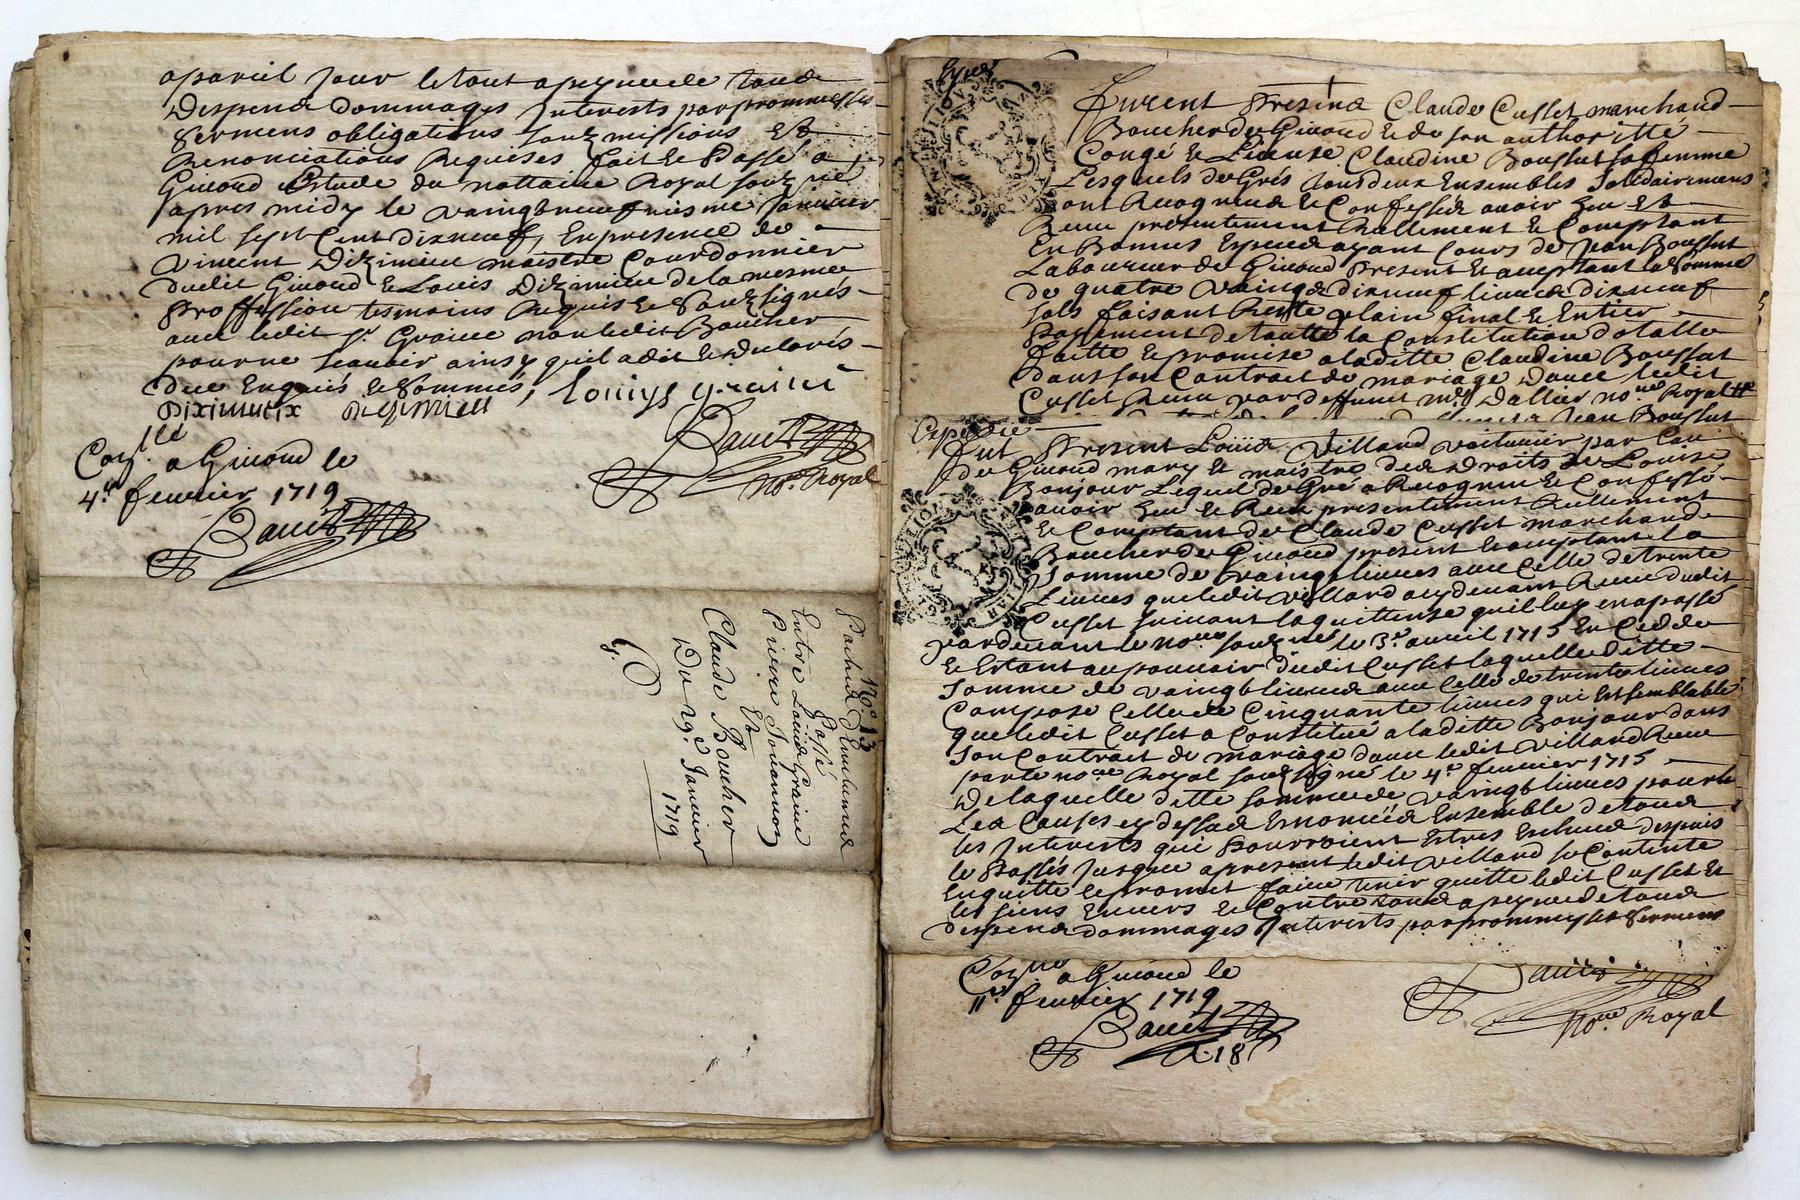 apareil Jour le tout apeyne de tous
Despens dommages Interests par promesses
sermens obligations souz missions Et
Renonciations Requises fait Et Passé a
Giuord Estude du nottaire Royal souz né
apres midy le vaingtneufuiesme Januier
mil sept Cent dixneuf, En presence de
Vincent Dizimieu maistre Courdonnier
dudit Giuord & Louis Dizimieu de la mesme
Proffession tesmoins Requis & Souzsignes
auec ledit Sr. Graine non ledit Boucher
pour ne scauoir ainsy quil a dit & declaré
deue Enquis & Sommés, Louys graine
Diximieux Dizimieu
Bauet
Nore. Royal
Conlle a Giuord le
4e. feurier 1719
Bauet
No. 13
Passé
Entre Louis Graine
Pierre
Et
Claude Boucher
Du 29e Januier
1719
Exped
Furent Presens Claude Cusset marchand
Boucher de Giuord & de son authoritté
Congé & Lisense Claudine Boussut sa femme
Lesquels de Gres tous deux Ensembles Solidairement
ont Recogneus & Confesses auoir Heu Et
Receu présentement Reellement & Comptant
En Bonnes Especes ayant Cours de Jean Boussut
Laboureur de Giuord Present Et acceptant la Somme
de quatre vaingts dixneuf liures dixneuf
sols faisant Reste plain final & Entier
Payement de toutte la Constitution dotalle
faitte & promise a laditte Claudine Boussut
dans son Contrait de mariage dauec ledit
Cusset Receu par deffunct me. Dallier nore. Royal
Jean Boussut
Expedié
Fut Present Louis Villand voiturier par Eau
de Giuord mary & maistre des Droits de Louise
Bonjour Lequel de Gré a Recogneu & Confessé
auoir Heu & Receu presentement Reellement
& Comptant de Claude Cusset marchand
Boucher de Giuord present & acceptant la
somme de vaingt liures auec Celle de trente
Liures que ledit Villand a cy deuant Receu dudit
Cusset suiuant la quittense quil luy en a passé
par deuant le nore. souz né le 3e. auril 1715 En
& Estant au pouuoir dudit Cusset laquelle ditte
somme de vaingt liures auec Celle de trente liures
Compose Celle de Cinquante liures qui Est semblable
que ledit Cusset a Constitué a laditte Bonjour dans
son Contrait de mariage dauec ledit Villand Receu
par le nore Royal souz signé le 4e. feurier 1715
De laquelle ditte somme de vaingt liures pour le
Les Causes cy dessus Enoncées Ensemble de tous
les Interests qui Pourroient Estres Escheus despuis
le Passés Jusque apresent ledit Villand se Contente
En quitte & promet faire tenir quitte ledit Cusset Et
les siens Enuers & Contre tous a peyne de tous
despens dommages Interests par promesses sermens
Conlle a Giuord le
11e. feurier 1719
Bauet
Bauet
Nore. Royal